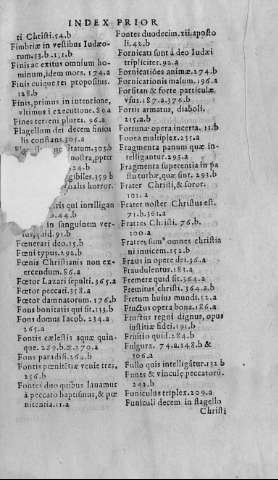 INDEX PRIOR
ti Christi. 54.b
Fimbriæ in vestibus Iudæo-
rum. 53.b.1,1.b
Finis ac exitus omnium ho-
minum, idem mors. 174.a
Finis cuique rei propositus.
128.b
Finis, primus in intentione,
vltimus i executione. 80.a
Fines terreni plures. 96.a
Flagellum dei decem funicu
lis constans. 305.a
nostra, ppter
.b
horror.
ris qui intelligan
in sanguinem ver-
91.b
Fœnerari deo. 15.b
Fœni typus. 92.b
Fœnus Christianis non ex-
ercendum. 86.a
Fœtor Lazari sepulti. 365.a
Fœtor peccati. 358.a
Fœtor damnatorum. 176.b
Fons bonitatis qui sit. 133.b
Fons domus Iacob. 234.a
265.a
Fontis cælestis aquæ quin-
que. 269.b.& 270.a
Fons paradisi. 264.b
Fontis pœnitentiæ venæ tres.
256.b
Fontes duo quibus lauamur
à peccato baptismus, & pœ
nitentia. 11.a
Fontes duodecim. xii. aposto
li. 48.b
Fornicati sunt à deo Iudæi
tripliciter. 92.a
Fornicationes animæ. 274.b
Fornicationis malum. 196.a
Forsitan & forte particulæ
vsus. 187.a.376.b
Fortis armatus, diaboli.
215.a,b
Fortunæ opera incerta. 11.b
Fouea multiplex. 235.a
Fragmenta panum quæ in-
telligantur. 295.a
Fragmenta superentia in pa
stu turbæ, quæ sint. 293.b
Frater Christi, & soror.
101.a
Frater noster Christus est.
71.b.361.a
Fratres Christi. 76.b.
100.a
Fratres sumus omnes christia
ni inuicem. 152.b
Fraus in opere dei. 36.a
Fraudulentus. 181.a
Fremere quid sit. 364.a
Fremitus christi. 364.a.b
Fretum huius mundi. 52.a
Fructus opera bona. 186.a
Fructus regni dignus, opus
iustitiæ fidei. 191.b
Fruitio quid. 284.b
Fulgura. 74.a.148.b &
306.a
Fullo quis intelligatur. 132.b
Funes & vincula peccatorū.
242.b
Funiculus triplex. 209.a
Funiculi decem in flagello
Christi